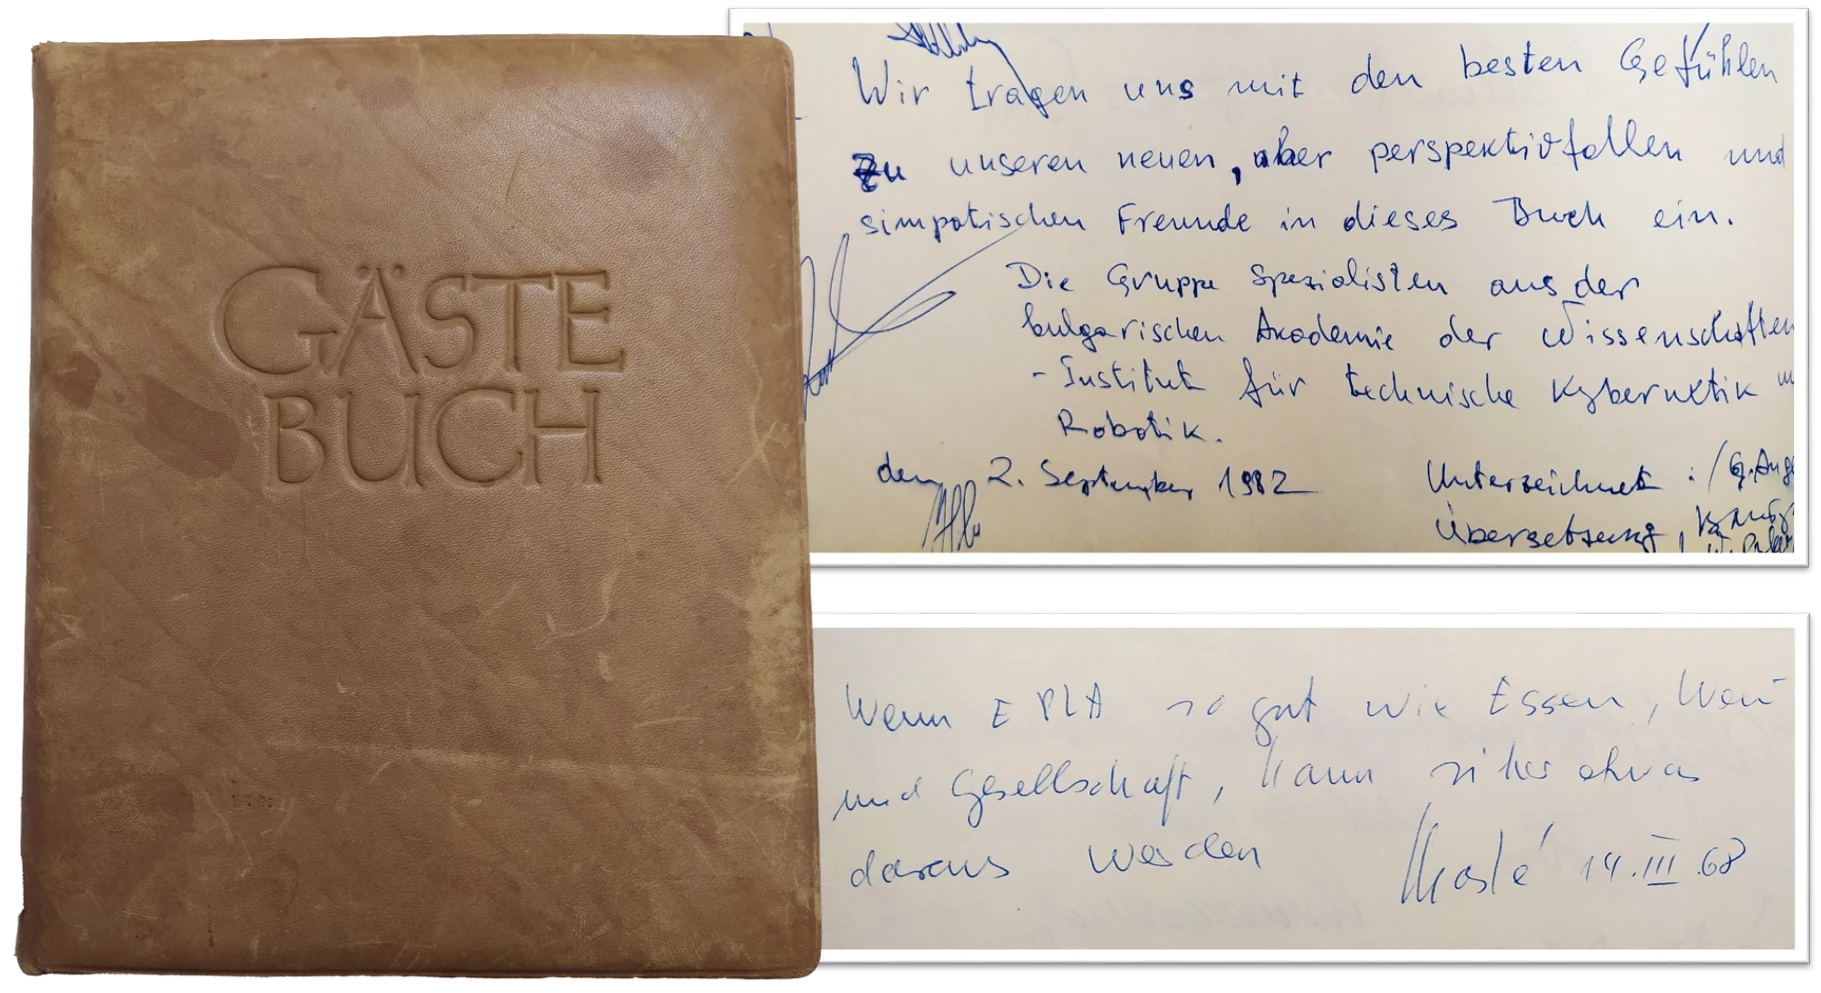 GÄSTE
BUCH
Wir tragen uns mit den besten Gefühlen
zu unseren neuen, aber perspektivfollen und
simpatischen Freunde in dieses Buch ein.
Die Gruppe Spezialisten aus der
bulgarischen Akademie der Wissenschaften
- Institut für technische Kybernetik
Robotik.
den 2. September 1982
Unterzeichnet : / G. Ang
Übersetzung
Wenn EPLA so gut wie Essen, Wein
und Gesellschaft, kann sicher etwas
daraus werden 14.III.68